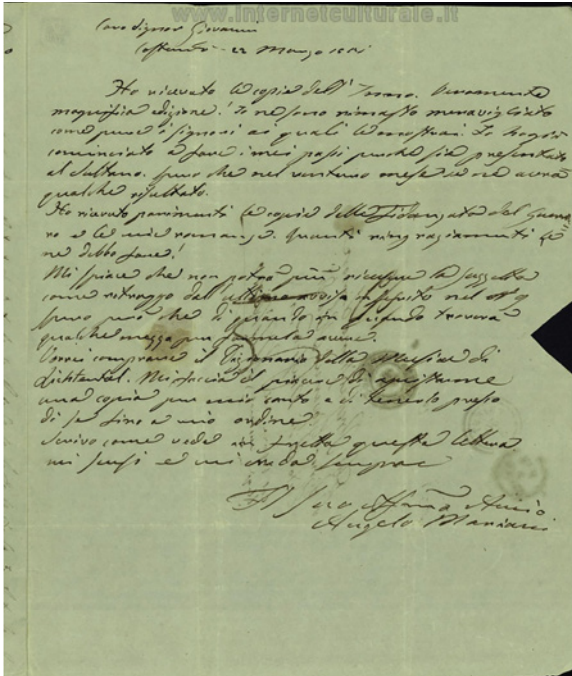 www.internetculturale.it
Caro Signor Giovanni
Costant. 22 Marzo 1851
Ho ricevuto le copie dell' Inno. Veramente
magnifica edizione! Io ne sono rimasto maravigliato
come pure i signori ai quali le mostrai. Io ho già
cominciato a fare i miei passi perché sia presentato
al Sultano. Spero che nel venturo mese se ne avrà
qualche risultato.
Ho ricevuto parimenti le copie della Fidanzata del Guerrie-
ro e le mie romanze. Quanti ringraziamenti Le
ne debbo fare!
Mi spiace che non potrà più ricevere la gazzetta
come ritraggo dall' ultimo avviso inserito nel nº 9
spero però che di quando in quando troverà
qualche mezzo per farmela avere.
Vorrei comprare il Dizionario della Musica di
Lichtental. Mi faccia il piacere di
una copia per mio conto e di tenerlo presso
di se fino a mio ordine.
Scrivo come vede in fretta questa lettera
mi scusi e mi creda sempre
Il Suo Affmo Amico
Angelo Mariani